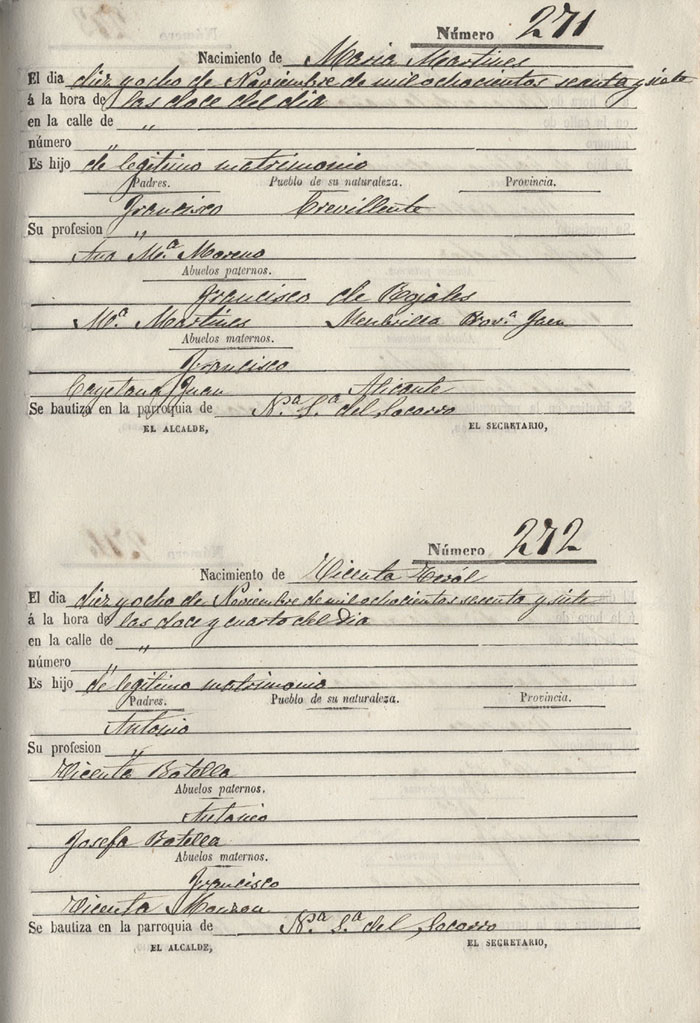 Número 271
Nacimiento de Maria Martines
El dia diez y ocho de Noviembre de mil ochocientos sesenta y siete
á la hora de las doce del dia
en la calle de "
número "
Es hijo de legitimo matrimonio
Padres. Pueblo de su naturaleza. Provincia.
Francisco Crevillente
Su profesion "
Ana Mª Moreno
Abuelos paternos.
Francisco de Rojales
Mª Martines Menbrilla Provª Jaen
Abuelos maternos.
Francisco
Cayetana Juan Alicante
Se bautiza en la parroquia de Nª Sª del Socorro
EL ALCALDE, EL SECRETARIO,
Número 272
Nacimiento de Vicenta Teról
El dia diez y ocho de Noviembre de mil ochocientos sesenta y siete
á la hora de las doce y cuarto del dia
en la calle de "
número "
Es hijo de legitimo matrimonio
Padres. Pueblo de su naturaleza. Provincia.
Antonio
Su profesion "
Vicenta Botella
Abuelos paternos.
Antonio
Josefa Botella
Abuelos maternos.
Francisco
Vicenta Monzon
Se bautiza en la parroquia de Nª Sª del Socorro
EL ALCALDE, EL SECRETARIO,